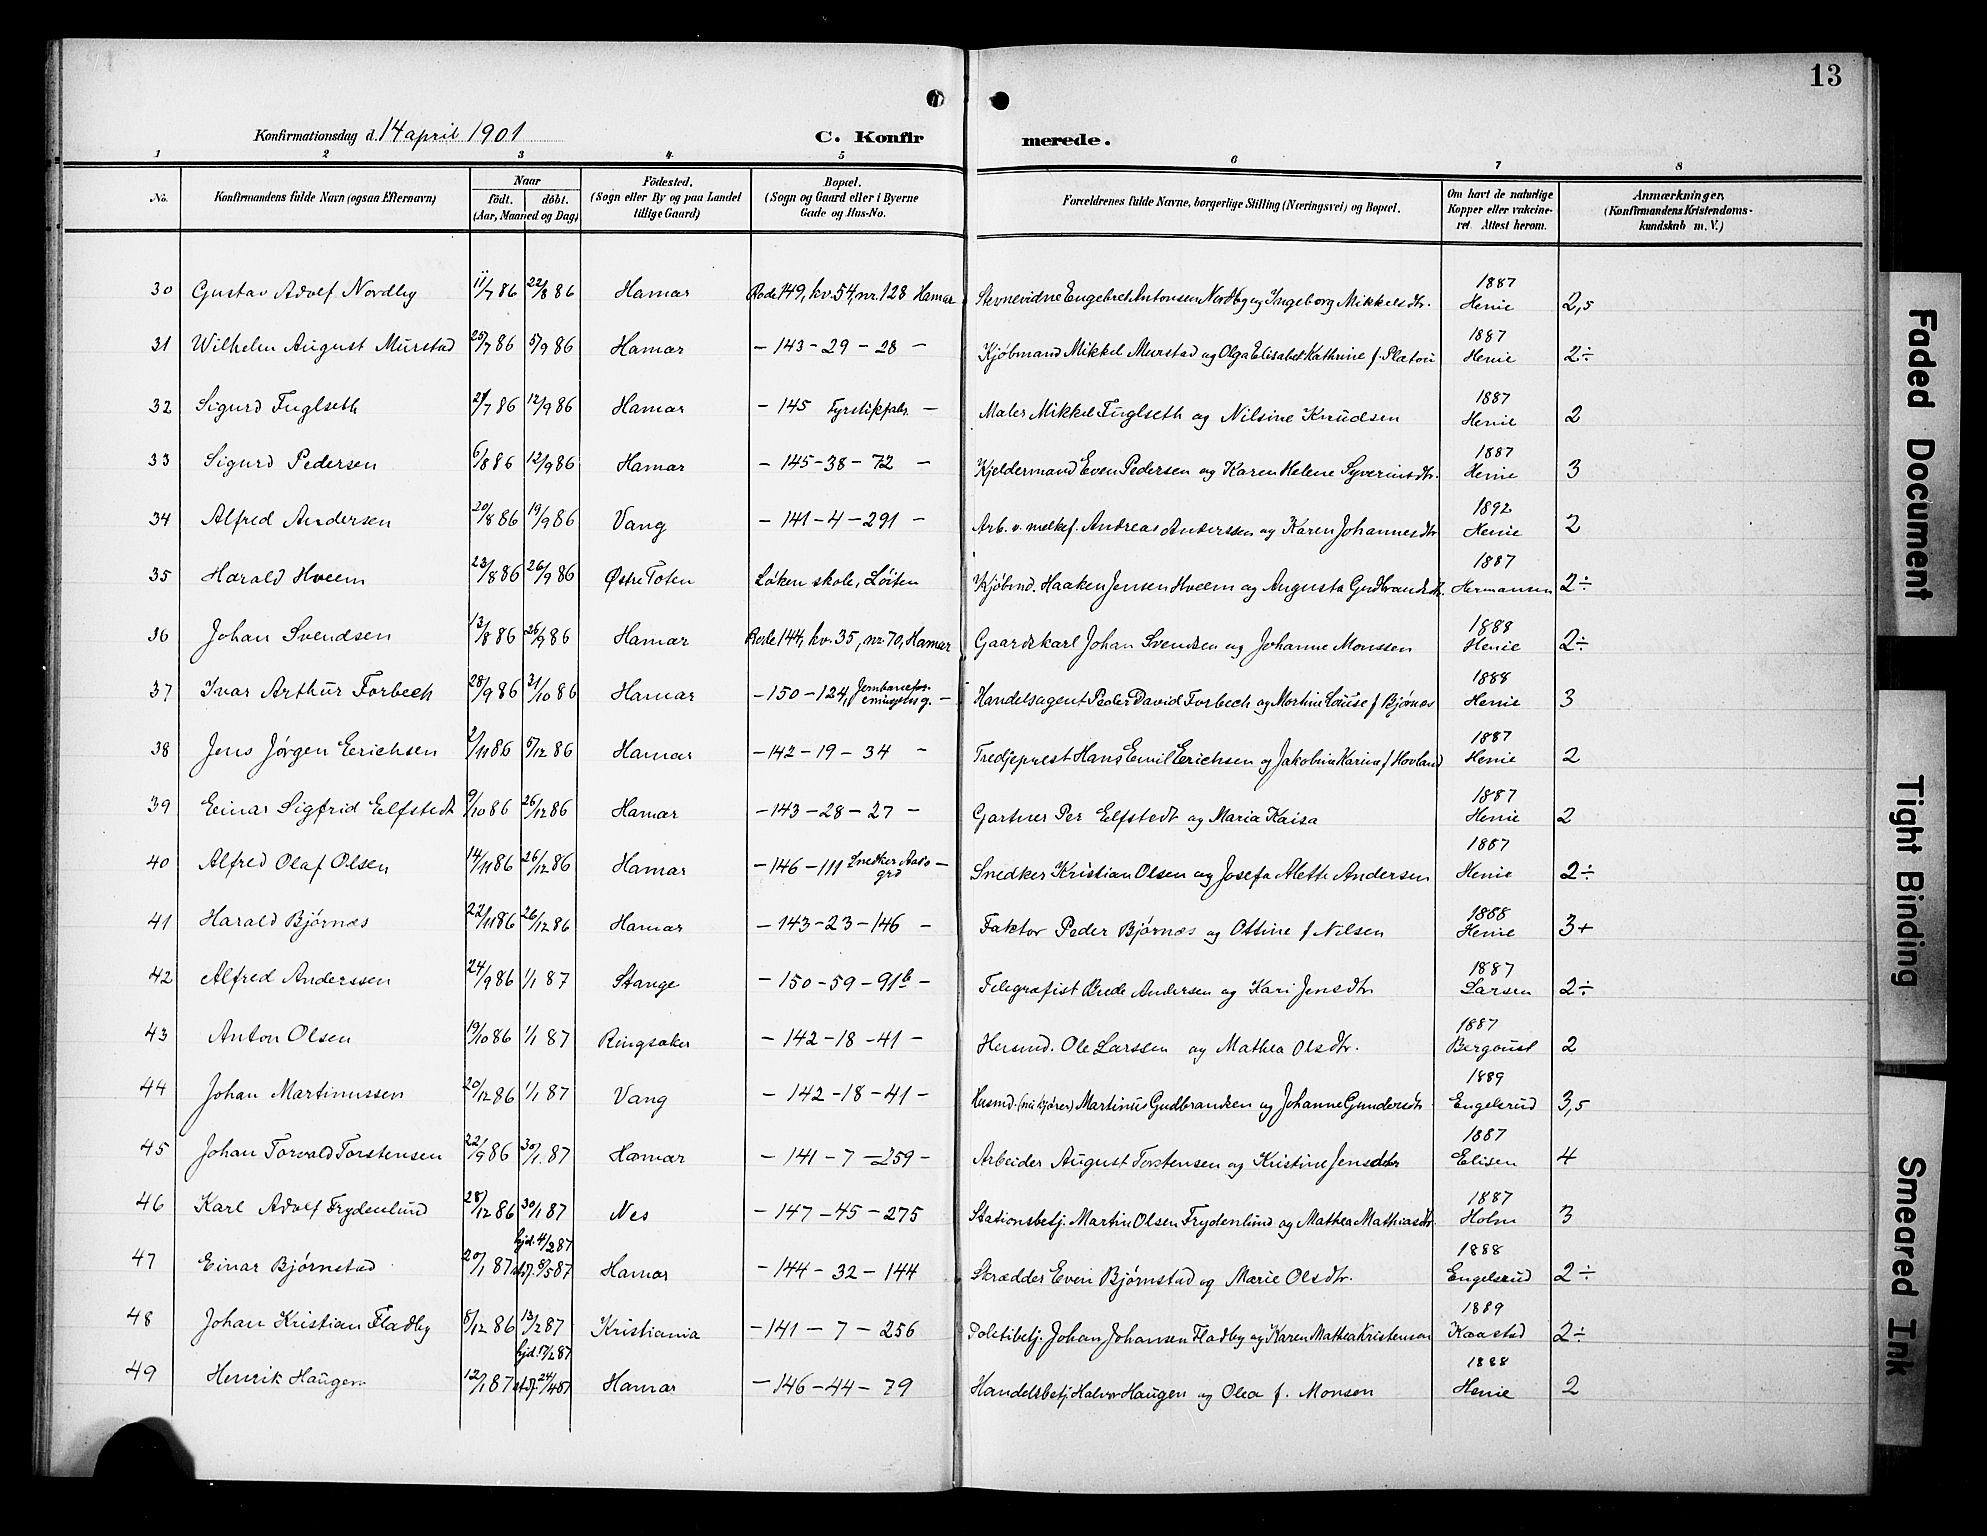 13
Konfirmationsdag d. 14 april 1901
C. Konfirmerede.
1 2 3 4 5 6 7 8
No. Konfirmandens fulde Navn (ogsaa Efternavn) Naar født. døbt. (Aar, Maaned og Dag) Fødested. (Sogn eller By og paa Landet tillige Gaard) Bopæl. (Sogn og Gaard eller i Byerne Gade og Hus-No. Forældrenes fulde Navne, borgerlige Stilling (Næringsvei) og Bopæl. Om havt de naturlige Kopper eller vakcineret. Attest herom. Anmærkninger. (Konfirmandens Kristendomskundskab m. V.)
30 Gustav Adolf Nordby 11/7 86 22/8 86 Hamar Rode 149, kv. 54, nr. 128 Hamar Stevnevidne Engebret Antonsen Nordby og Ingeborg Mikkelsdtr. 1887 Henie 2,5
31 Wilhelm August Murstad 25/7 86 5/9 86 Hamar – 143 – 29 – 28 – Kjøbmand Mikkel Murstad og Olga Elisabet Kathrine f. Platou 1887 Henie 2÷
32 Sigurd Fuglseth 21/7 86 12/9 86 Hamar – 145 Fyrstikfabr. – Maler Mikkel Fuglseth og Nilsine Knudsen 1887 Henie 2
33 Sigurd Pedersen 6/8 86 12/9 86 Hamar – 145 – 38 – 72 – Kjeldermand Even Pedersen og Karen Helene Syverinsdtr. 1887 Henie 3
34 Alfred Andersen 20/8 86 19/9 86 Vang – 141 – 4 – 291 – Arb. v. melkef. Andreas Anderssen og Karen Johannesdtr 1892 Henie 2
35 Harald Hveem 23/8 86 26/9 86 Østre Toten Løken skole, Løiten Kjøbmd. Haaken Jensen Hveem og Augusta Gudbrandsdtr. 1887 Hermansen 2÷
36 Johan Svendsen 13/8 86 26/9 86 Hamar Rode 144, kv. 35, nr. 70, Hamar Gaardskarl Johan Svendsen og Johanne Monssen 1888 Henie 2÷
37 Ivar Arthur Forbech 28/9 86 31/10 86 Hamar – 150 – 124, – Handelsagent Peder David Forbech og Martine Louise f. Bjørnes 1888 Henie 3
38 Jens Jørgen Erichsen 2/11 86 5/12 86 Hamar – 142 – 19 – 34 – Tredjeprest Hans Emil Erichsen og Jakobine Karine f. Hovland 1887 Henie 2
39 Einar Sigfrid Elfstedt 9/10 86 26/12 86 Hamar – 143 – 28 – 27 – Gartner Per Elfstedt og Maria Kaisa 1887 Henie 2
40 Alfred Olaf Olsen 14/11 86 26/12 86 Hamar – 146 – 111 Snedker Aas's grd – Snedker Kristian Olsen og Josefa Alette Andersen 1887 Henie 2÷
41 Harald Bjørnæs 22/11 86 26/12 86 Hamar – 143 – 23 – 146 – Faktor Peder Bjørnæs og Ottine f. Nilsen 1888 Henie 3+
42 Alfred Anderssen 24/9 86 1/1 87 Stange – 150 – 59 – 91b – Telegrafist Brede Andersen og Kari Jensdtr 1887 Larsen 2÷
43 Anton Olsen 19/10 86 1/1 87 Ringsaker – 142 – 18 – 41 – Husmd. Ole Larssen og Mathea Olsdtr. 1887 Bergoust 2
44 Johan Martinussen 20/12 86 1/1 87 Vang – 142 – 18 – 41 – Husmd. (nu kjører) Martinus Gudbrandsen og Johanne Gundersdtr 1889 Engelsrud 3,5
45 Johan Torvald Torstensen 22/9 86 30/1 87 Hamar – 141 – 7 – 259 – Arbeider August Torstensen og Kristine Jensdatter 1887 Elisen 4
46 Karl Adolf Frydenlund 28/12 86 30/1 87 Nes – 147 – 45 – 275 Stationsbetj. Martin Olsen Frydenlund og Mathea Mathiasdtr. 1887 Holm 3
47 Einar Bjørnstad 20/1 87 hjd. 4/2 87 stadf. 8/5 87 Hamar – 144 – 32 – 144 Skrædder Even Bjørnstad og Marie Olsdtr. 1888 Engelsrud 2÷
48 Johan Kristian Fladby 8/12 86 13/2 87 Kristiania – 141 – 7 – 256 Politibetj. Johan Johansen Fladby og Karen Mathea Kristensen 1889 Kaastad 2÷
49 Henrik Haugen 12/1 87 hjd. 17/2 87 stadf. 24/4 87 Hamar – 146 – 44 – 79 Handelsbetj. Halvor Haugen og Olea f. Monsen 1888 Henie 2
Faded Document
Tight Binding
Smeared Ink